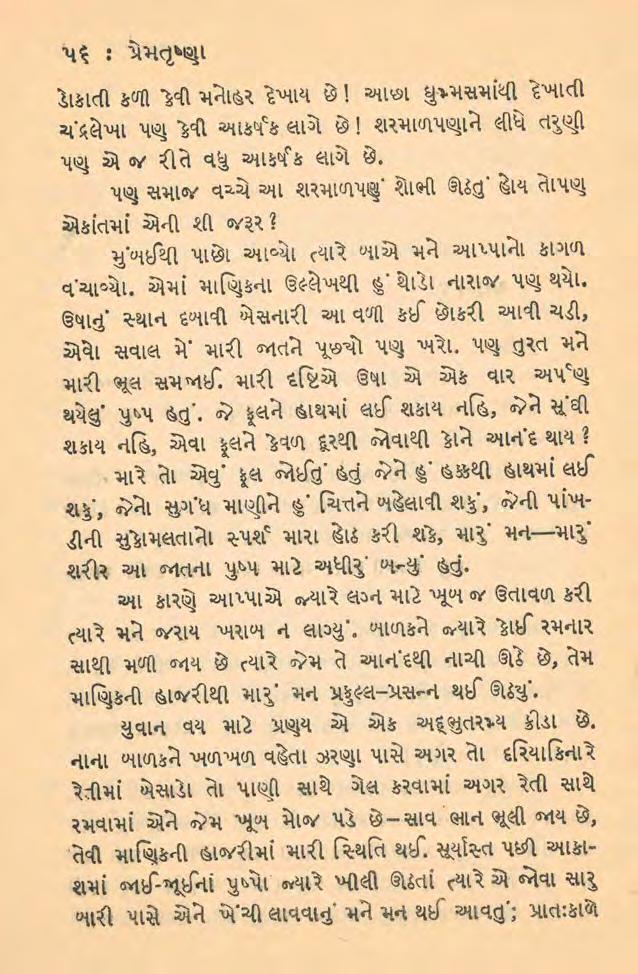 ૫૬ : પ્રેમતૃષ્ણા
ડોકાતી કળી કેવી મનોહર દેખાય છે! આછા ધુમ્મસમાંથી દેખાતી
ચંદ્રલેખા પણ કેવી આકર્ષક લાગે છે! શરમાળપણાને લીધે તરુણી
પણ એ જ રીતે વધુ આકર્ષક લાગે છે.
પણ સમાજ વચ્ચે આ શરમાળપણું શોભી ઊઠતું હોય તોપણ
એકાંતમાં એની શી જરૂર?
મુંબઈથી પાછો આવ્યો ત્યારે બાએ મને આપ્પાનો કાગળ
વંચાવ્યો. એમાં માણિકના ઉલ્લેખથી હું થોડો નારાજ પણ થયો.
ઉષાનું સ્થાન દબાવી બેસનારી આ વળી કઈ છોકરી આવી ચડી,
એવો સવાલ મેં મારી જાતને પૂછ્યો પણ ખરો. પણ તુરત મને
મારી ભૂલ સમજાઈ. મારી દૃષ્ટિએ ઉષા એ એક વાર અર્પણ
થયેલું પુષ્પ હતું. જે ફૂલને હાથમાં લઈ શકાય નહિ, જેને સૂંઘી
શકાય નહિ, એવા ફૂલને કેવળ દૂરથી જોવાથી કોને આનંદ થાય?
મારે તો એવું ફૂલ જોઈતું હતું જેને હું હક્કથી હાથમાં લઈ
શકું, જેનો સુગંધ માણીને હું ચિત્તને બહેલાવી શકું, જેની પાંખ-
ડીની સુકોમલતાનો સ્પર્શ મારા હોઠ કરી શકે, મારું મન—મારું
શરીર આ જાતના પુષ્પ માટે અધીરું બન્યું હતું.
આ કારણે આપ્પાએ જ્યારે લગ્ન માટે ખૂબ જ ઉતાવળ કરી
ત્યારે મને જરાય ખરાબ ન લાગ્યું. બાળકને જ્યારે કોઈ રમનાર
સાથી મળી જાય છે ત્યારે જેમ તે આનંદથી નાચી ઊઠે છે, તેમ
માણિકની હાજરીથી મારું મન પ્રફુલ્લ–પ્રસન્ન થઈ ઊઠયું.
યુવાન વય માટે પ્રણય એ એક અદ્ભુતરમ્ય ક્રીડા છે.
નાના બાળકને ખળખળ વહેતા ઝરણા પાસે અગર તો દરિયાકિનારે
રેતીમાં બેસાડો તો પાણી સાથે ગેલ કરવામાં અગર રેતી સાથે
રમવામાં એને જેમ ખૂબ મોજ પડે છે–સાવ ભાન ભૂલી જાય છે,
તેવી માણિકની હાજરીમાં મારી સ્થિતિ થઈ. સૂર્યાસ્ત પછી આકા-
શમાં જાઈ-જૂઈનાં પુષ્પો જ્યારે ખીલી ઊઠતાં ત્યારે એ જોવા સારુ
બારી પાસે એને ખેંચી લાવવાનું મને મન થઈ આવતું; પ્રાતઃકાળે